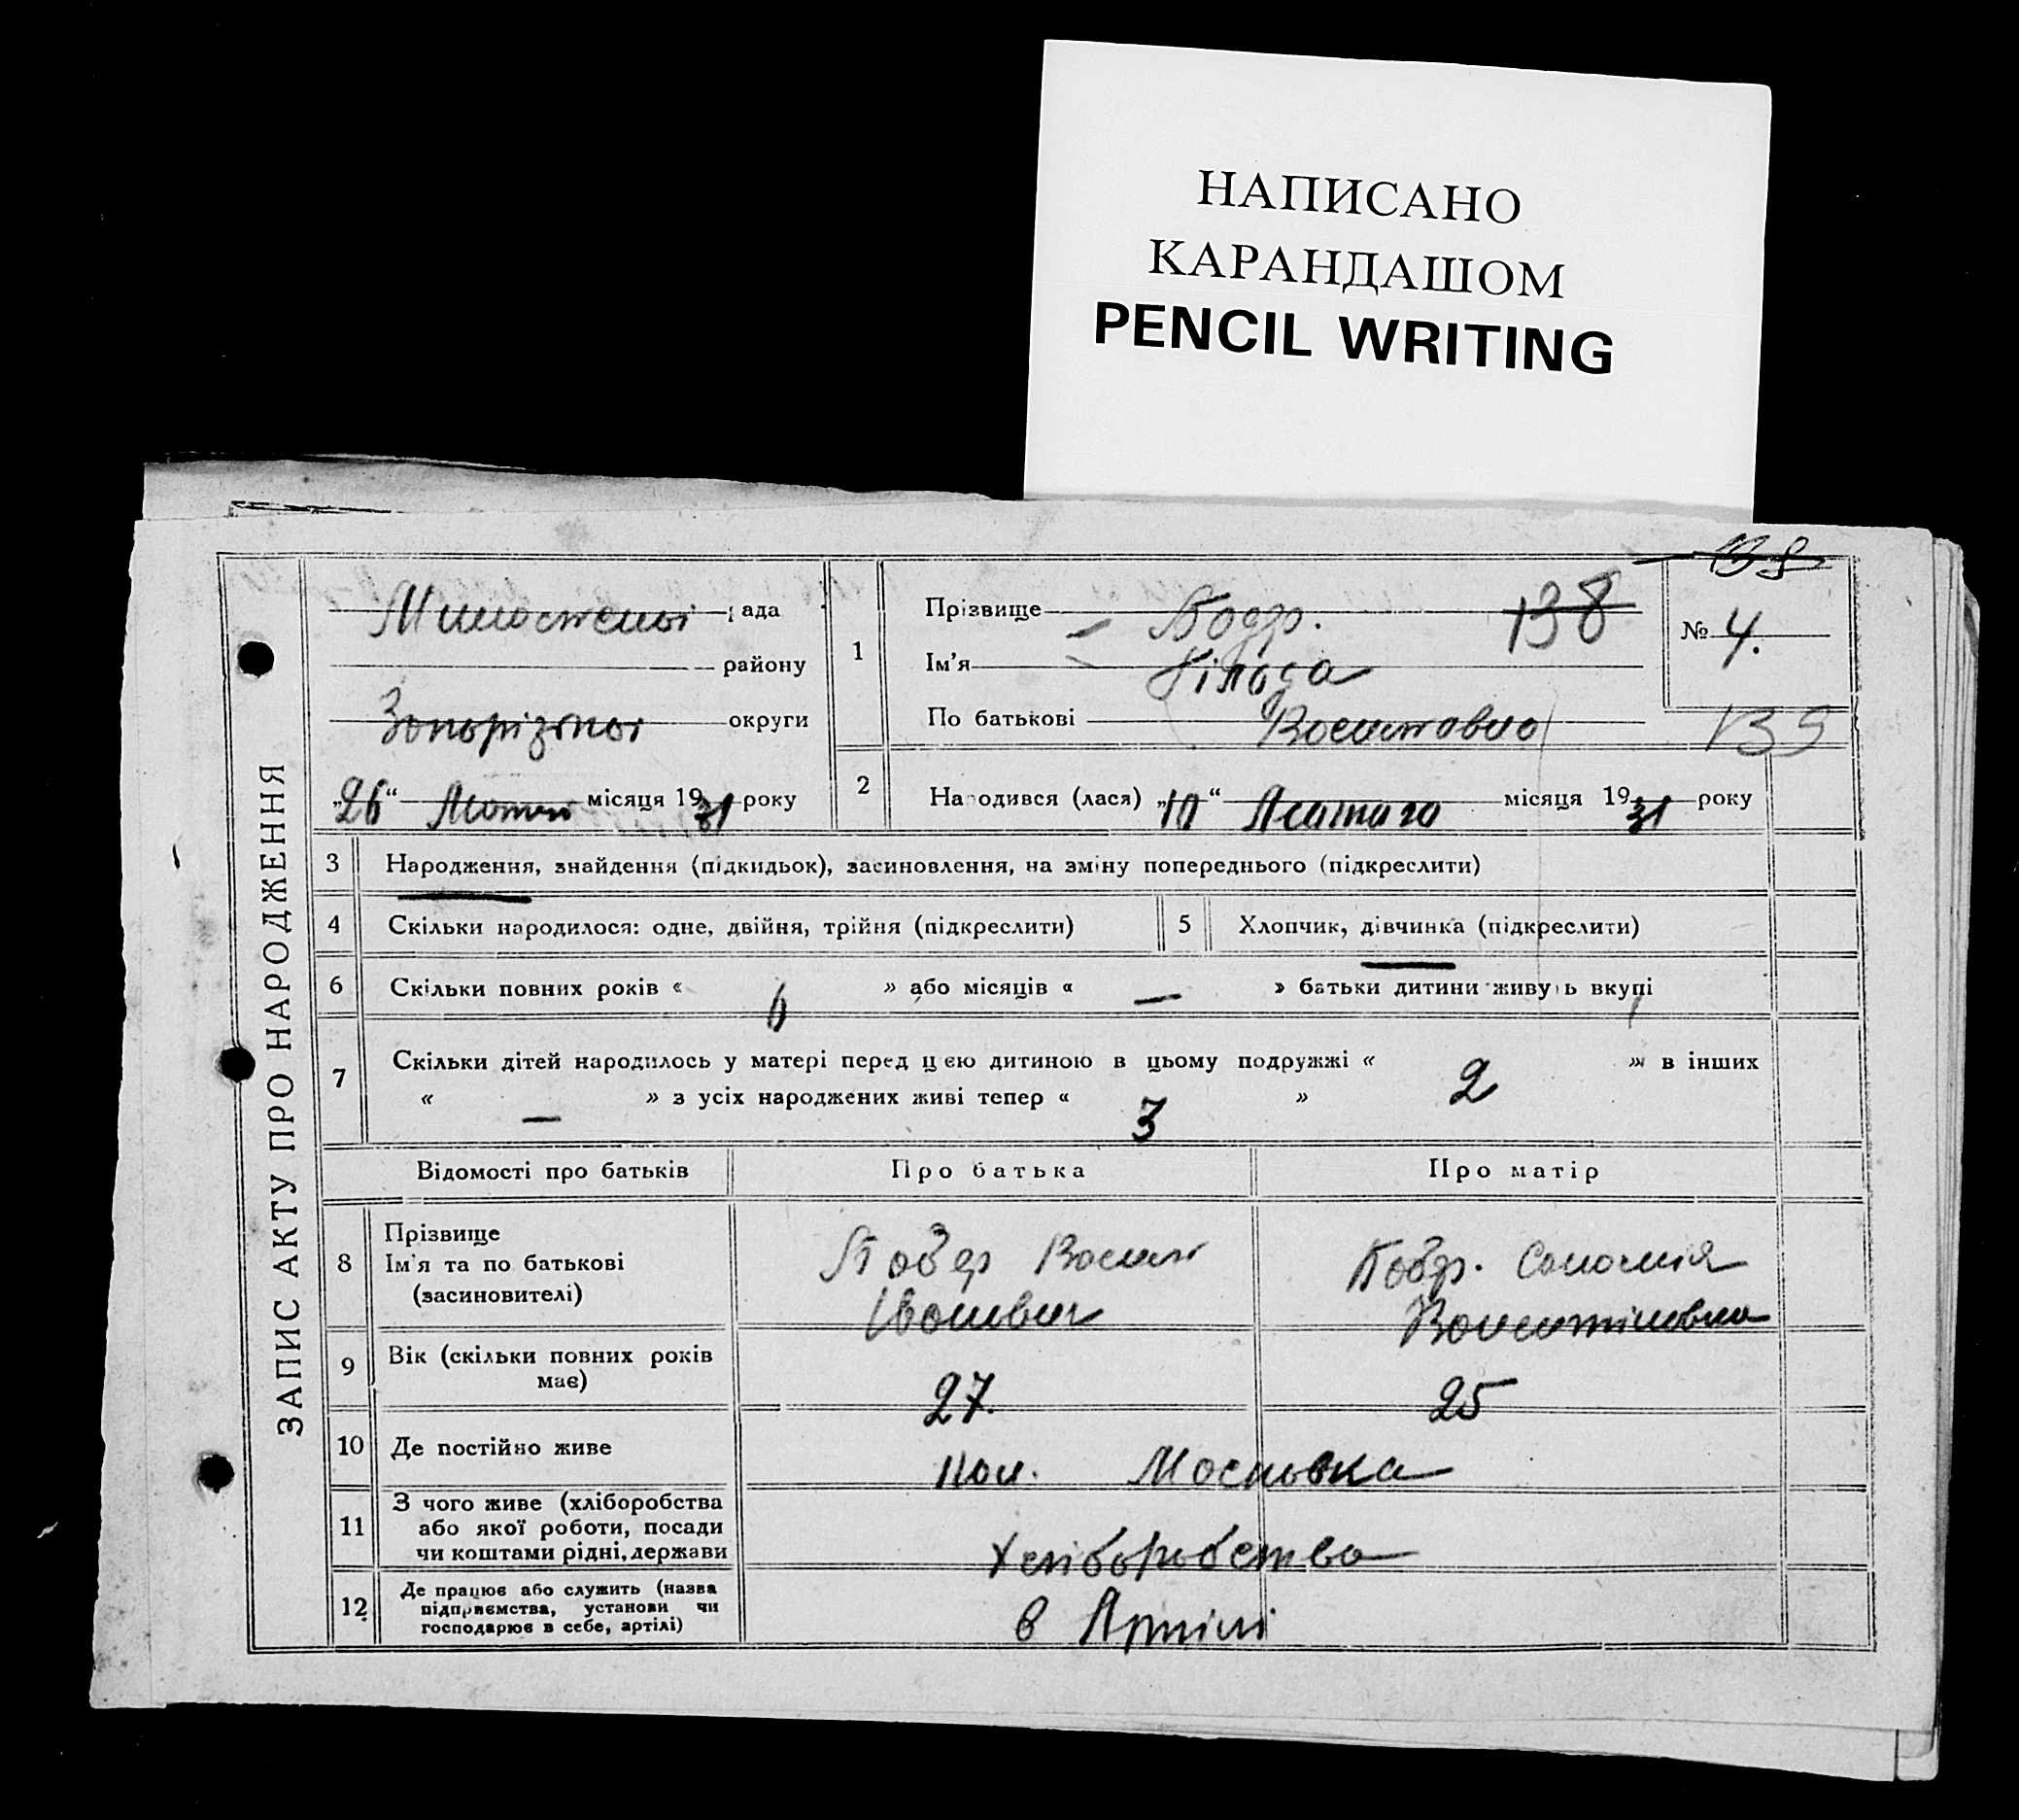 НАПИСАНО
КАРАНДАШОМ
PENCIL WRITING
ЗАПИС АКТУ ПРО НАРОДЖЕННЯ
рада
району
округи
„26“ місяця 1931 року
1
Прізвище 138
Ім'я
По батькові
№ 4.
139
2
Народився (лася) „10“ Лютого місяця 1931 року
3 Народження, знайдення (підкидьок), засиновлення, на зміну попереднього (підкреслити)
4 Скільки народилося: одне, двійня, трійня (підкреслити) 5 Хлопчик, дівчинка (підкреслити)
6 Скільки повних років « 6 » або місяців « — » батьки дитини живуть вкупі
7 Скільки дітей народилось у матері перед цією дитиною в цьому подружжі « 2 » в інших
« — » з усіх народжених живі тепер « 3 »
Відомості про батьків Про батька Про матір
8 Прізвище
Ім'я та по батькові
(засиновителі)
Василь
Іванович
Соломія
Валентинівна
9 Вік (скільки повних років
має)
27. 25
10 Де постійно живе Московка
11 З чого живе (хліборобства
або якої роботи, посади
чи коштами рідні, держави
Хліборобство
12 Де працює або служить (назва
підприємства, установи чи
господарює в себе, артілі)
в Артілі